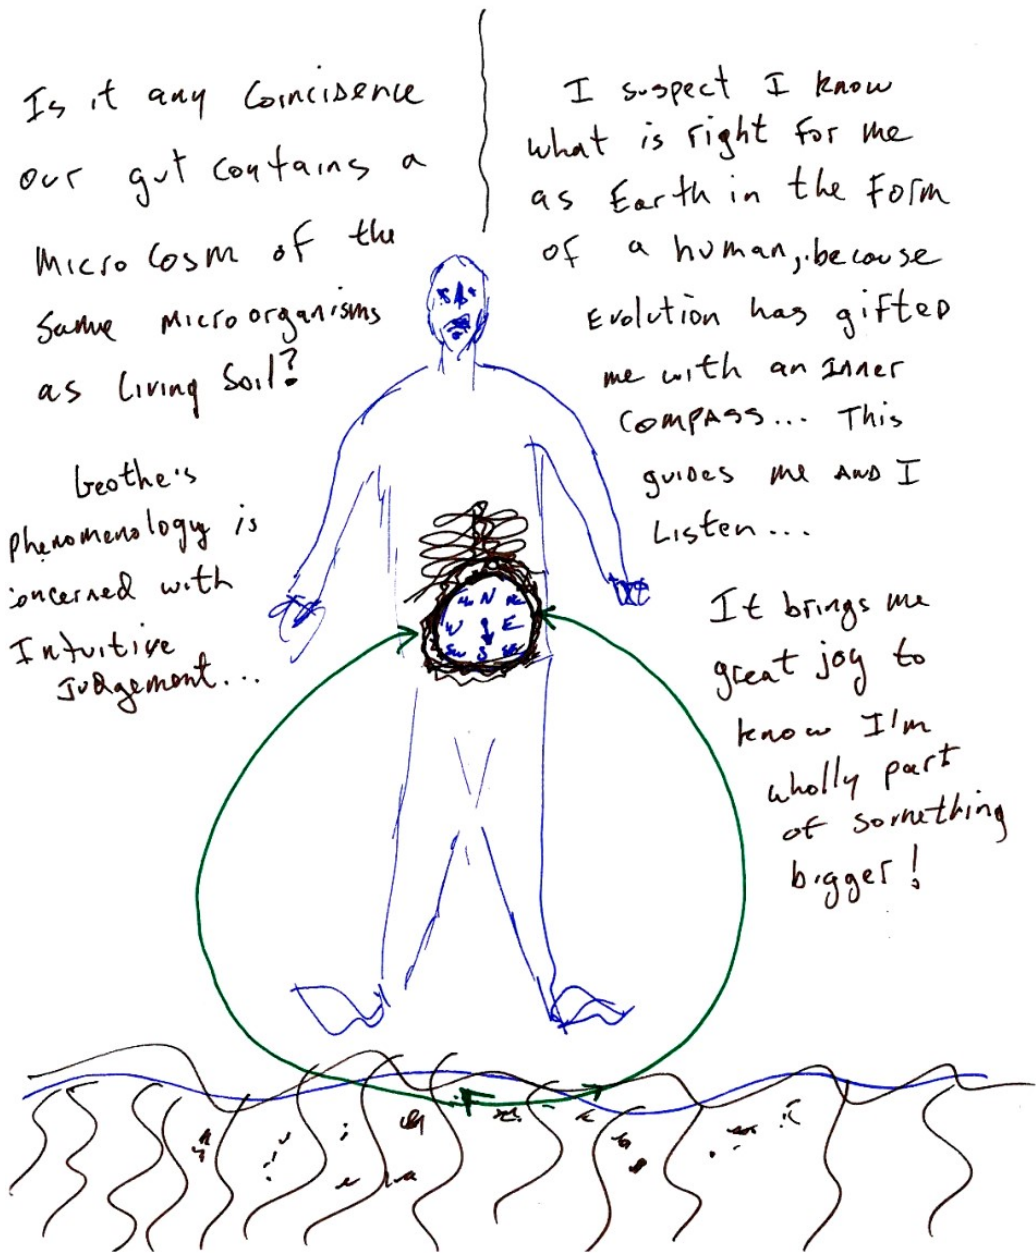 Is it any Coincidence
our gut contains a
Micro Cosm of the
Same Microorganisms
as Living Soil?
Geothe's
phenomenology is
concerned with
Intuitive
Judgement...
I suspect I know
what is right for me
as Earth in the Form
of a human, because
Evolution has gifted
me with an Inner
COMPASS... This
guides me AND I
Listen...
It brings me
great joy to
know I'm
wholly part
of something
bigger!
N
W E
SW S SE